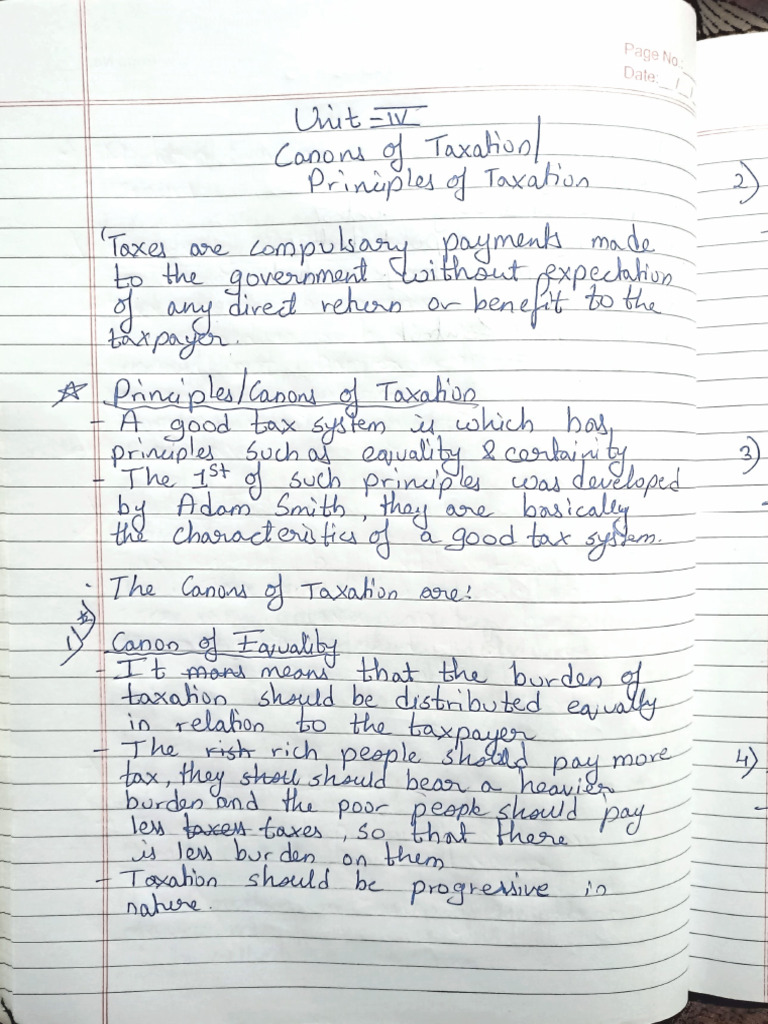 Page No.:
Date: / /
Unit = IV
Canons of Taxation/
Principles of Taxation
'Taxes are compulsary payments made
to the government without expectation
of any direct return or benefit to the
taxpayer.
☆ Principles/Canons of Taxation
- A good tax system is which has
principles such as equality & certainity
- The 1st of such principles was developed
by Adam Smith, they are basically
the characteristics of a good tax system.
. The Canons of Taxation are:
1) Canon of Equality
- It mans means that the burden of
taxation should be distributed equally
in relation to the taxpayer
- The rish rich people should pay more
tax, they shoul should bear a heavier
burden and the poor people should pay
less taxess taxes, so that there
is less burden on them
- Taxation should be progressive in
nature.
2)
3)
4)